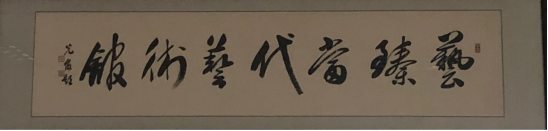 藝臻當代藝術館